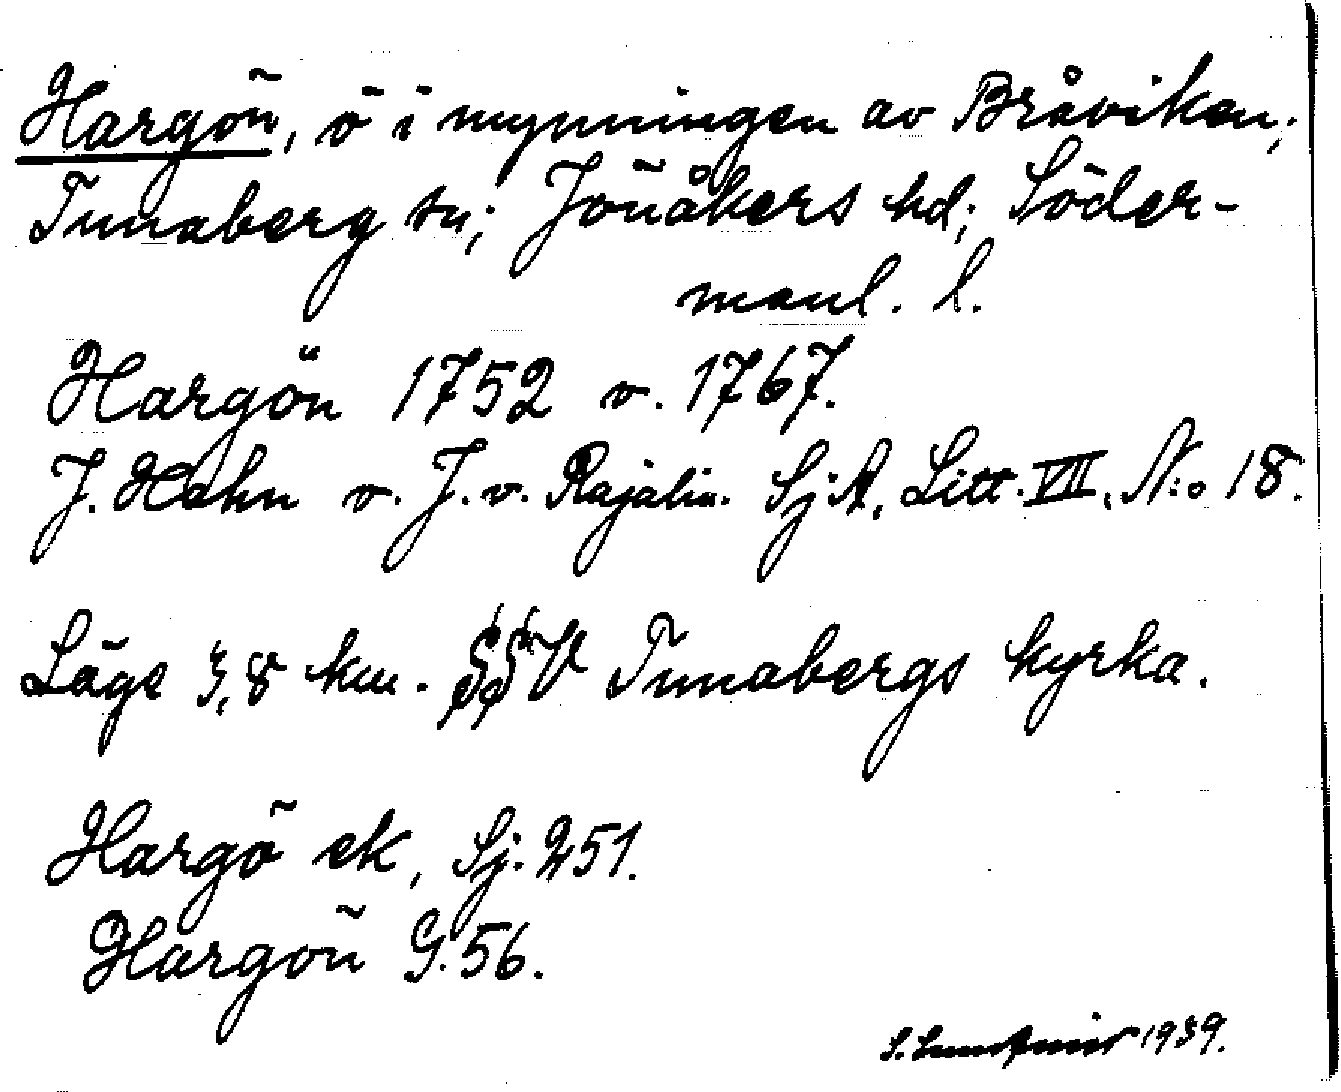 Hargön, ö i mynningen av Bråviken;
Tunaberg sn; Jönåkers hd; Söder-
manl. l.
Hargön 1752 o. 1767.
J. Hahn o. J. v. Rajalin. SjA, Litt. VII, N:o 18.
Läge 3,8 km. SSV Tunabergs kyrka.
Hargö ek, Sj. 251.
Hargön G. 56.
S. 1939.